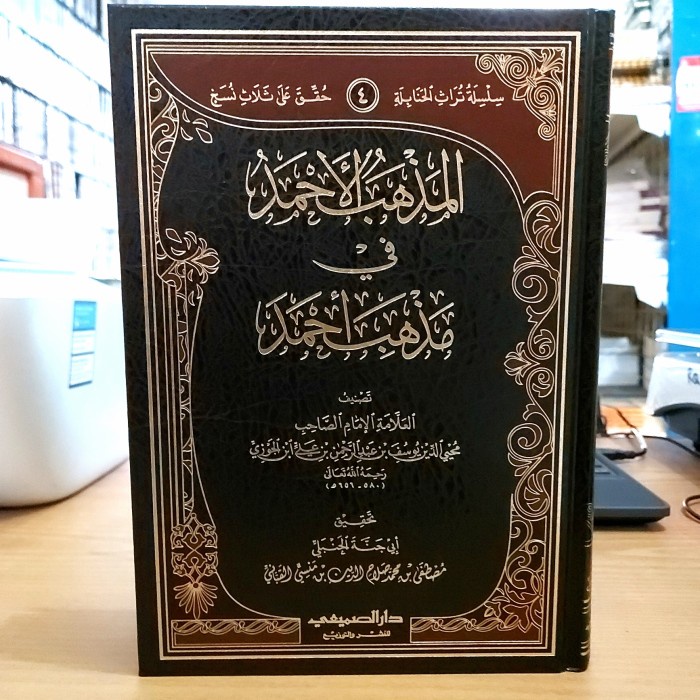 سِلْسِلَةُ تُرَاثِ الحَنَابِلَةِ ٤ حُقِّقَ عَلَى ثَلَاثِ نُسَخٍ
المَذْهَبُ الأَحْمَدُ
فِي
مَذْهَبِ أَحْمَدَ
تَصْنِيفُ
العَلَّامَةِ الإِمَامِ الصَّاحِبِ
مُحْيِي الدِّين يُوسُفَ بنِ عَبْدِ الرَّحْمٰنِ بنِ عَلِيٍّ ابْنِ الجَوْزِيِّ
رَحِمَهُ اللهُ تَعَالَى
(٥٨٠ - ٦٥٦ هـ)
تَحْقِيق
أَبِي جَنَّةَ الحَنْبَلِيِّ
مُصْطَفَى بن مُحَمَّد صَلَاحِ الدِّين بن مَنْسِي القَبَّانِيِّ
دار الصميعي
للنشر والتوزيع